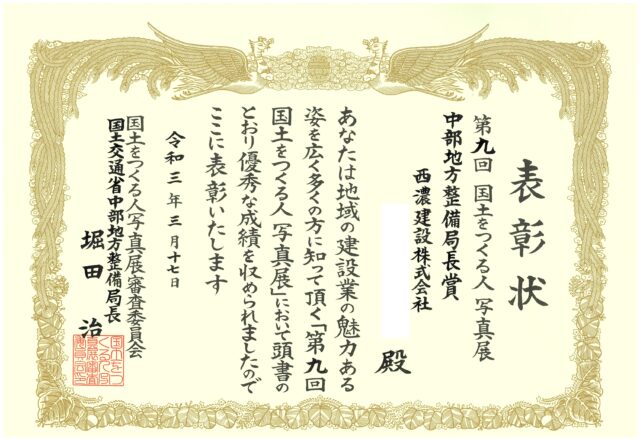 表彰状
第九回 国土をつくる人 写真展
中部地方整備局長賞
西濃建設株式会社
殿
あなたは地域の建設業の魅力ある
姿を広く多くの方に知って頂く「第九回
国土をつくる人 写真展」において頭書の
とおり優秀な成績を収められましたので
ここに表彰いたします
令和三年三月十七日
国土をつくる人写真展審査委員会
国土交通省中部地方整備局長
堀田 治